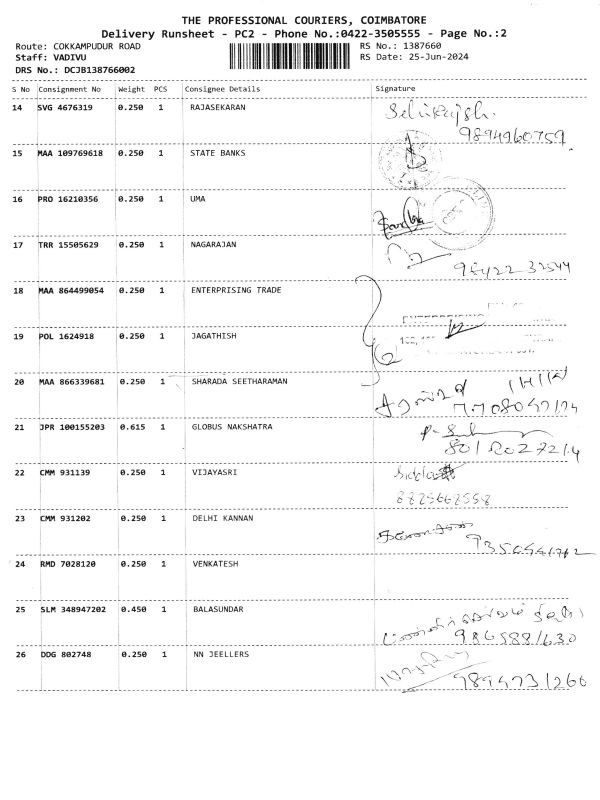 THE PROFESSIONAL COURIERS, COIMBATORE
Delivery Runsheet - PC2 - Phone No.:0422-3505555 - Page No.:2
Route: COKKAMPUDUR ROAD RS No.: 1387660
Staff: VADIVU RS Date: 25-Jun-2024
DRS No.: DCJB138766002
S No Consignment No Weight PCS Consignee Details Signature
14 SVG 4676319 0.250 1 RAJASEKARAN
9894960759
15 MAA 109769618 0.250 1 STATE BANKS
16 PRO 16210356 0.250 1 UMA
17 TRR 15505629 0.250 1 NAGARAJAN
98422 32544
18 MAA 864499054 0.250 1 ENTERPRISING TRADE
19 POL 1624918 0.250 1 JAGATHISH
20 MAA 866339681 0.250 1 SHARADA SEETHARAMAN
21 JPR 100155203 0.615 1 GLOBUS NAKSHATRA
22 CMM 931139 0.250 1 VIJAYASRI
8825662558
23 CMM 931202 0.250 1 DELHI KANNAN
24 RMD 7028120 0.250 1 VENKATESH
25 SLM 348947202 0.450 1 BALASUNDAR
9865881630
26 DDG 802748 0.250 1 NN JEELLERS
9894731266